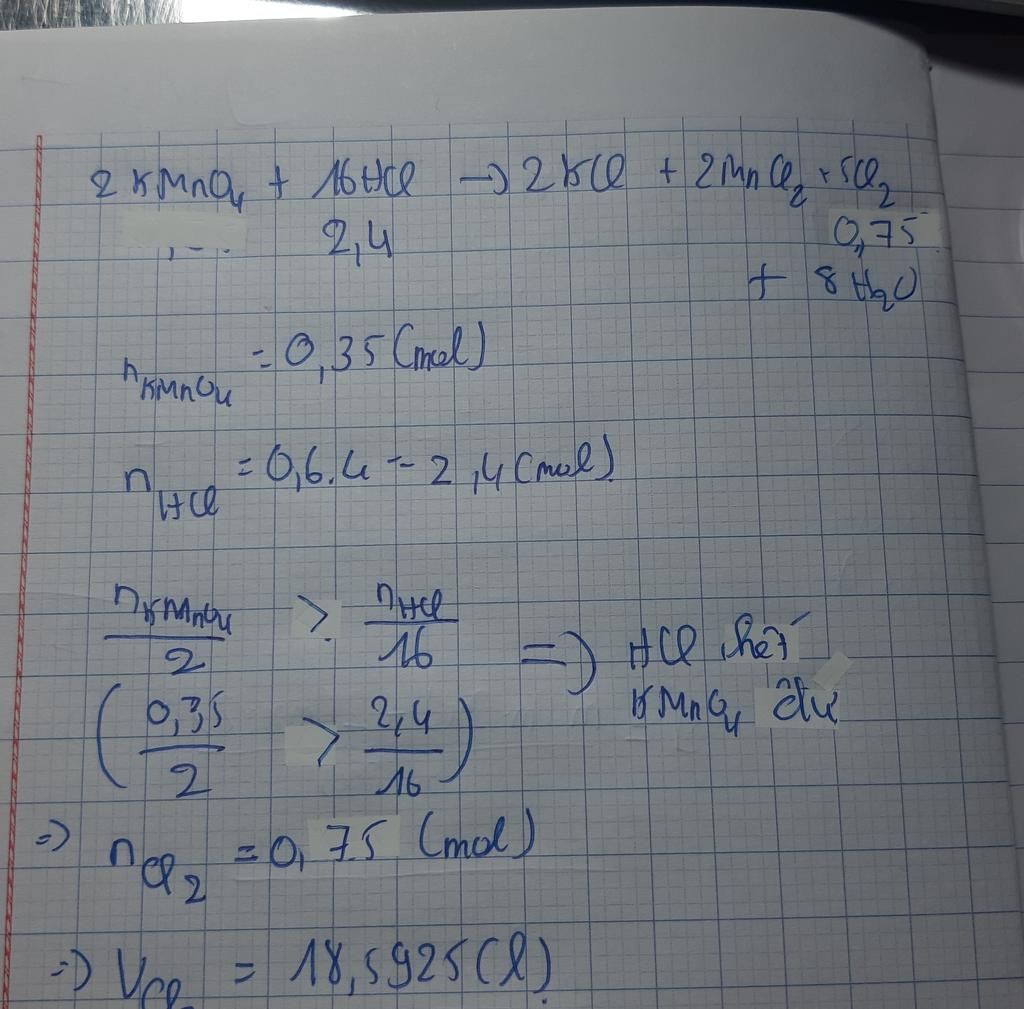 2KMnO4 + 16HCl → 2KCl + 2MnCl2 + 5Cl2
2,4 0,75
+ 8H2O
nKMnO4 = 0,35 (mol)
nHCl = 0,6.4 = 2,4 (mol)
nKMnO4/2 > nHCl/16 => HCl hết
KMnO4 dư
(0,35/2 > 2,4/16)
=> nCl2 = 0,75 (mol)
=> VCl2 = 18,5925 (l)